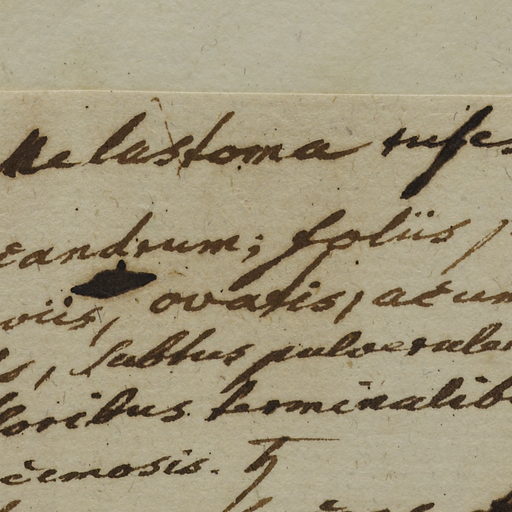 Melastoma rufes
candrum; foliis
viis, ovatis, acum
s, subtus pulverulen
floribus terminalib
cemosis. ♄